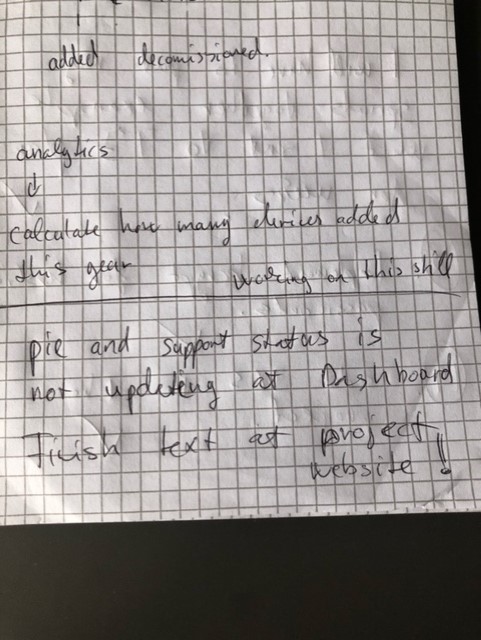 added decomissioned.
analytics
calculate how many devices added
this year
working on this still
pie and support status is
not updating at Dashboard
Finish text at project
website !!